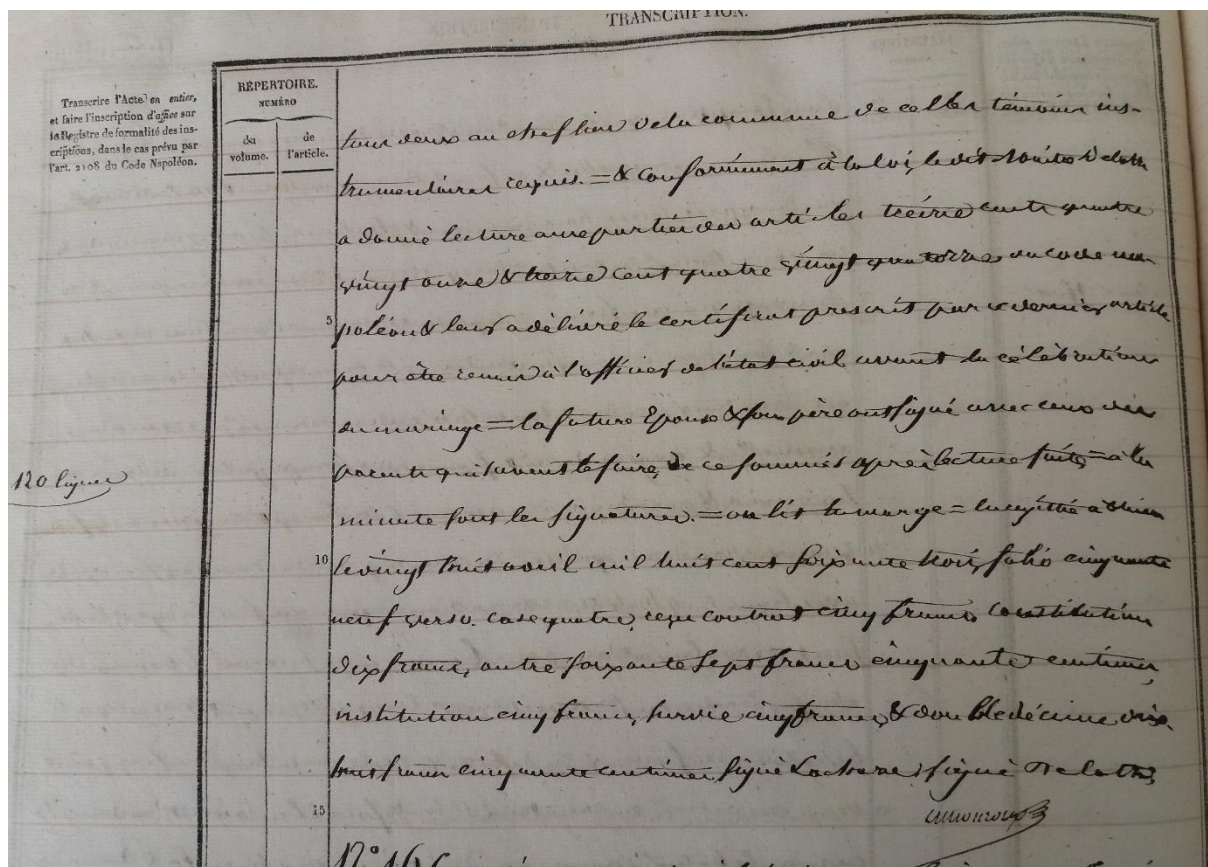 TRANSCRIPTION.
Transcrire l'Acte en entier,
et faire l'inscription d'office sur
le Registre de formalité des ins-
criptions, dans le cas prévu par
l'art. 2108 du Code Napoléon.
RÉPERTOIRE.
NUMÉRO
du volume.
de l'article.
tous deux au chef lieu de la commune de celles témoins ins-
trumentaires requis. = & conformément à la loi, le dit Notaire Delots
a donné lecture aux parties des articles treize cent quatre
vingt onze & treize cent quatre vingt quatorze du code na-
5
poléon & leur a délivré le certificat prescrit par ce dernier article
pour être remis à l'officier de l'état civil avant la célébration
du mariage = la future Epouse & son père ont signé avec ceux des
parents qui savent le faire, de ce sommés après lecture faite = à la
120 lignes
minute sont les signatures. = on lit en marge = Enregistré à
10
le vingt huit avril mil huit cent soixante trois, folio cinquante
neuf verso. case quatre, reçu contrat cinq francs constitution
dix francs, autre soixante sept francs cinquante centimes,
institution cinq francs, survie cinq francs, & double décime dix
huit francs cinquante centimes signé signé Delots
15
N° 16